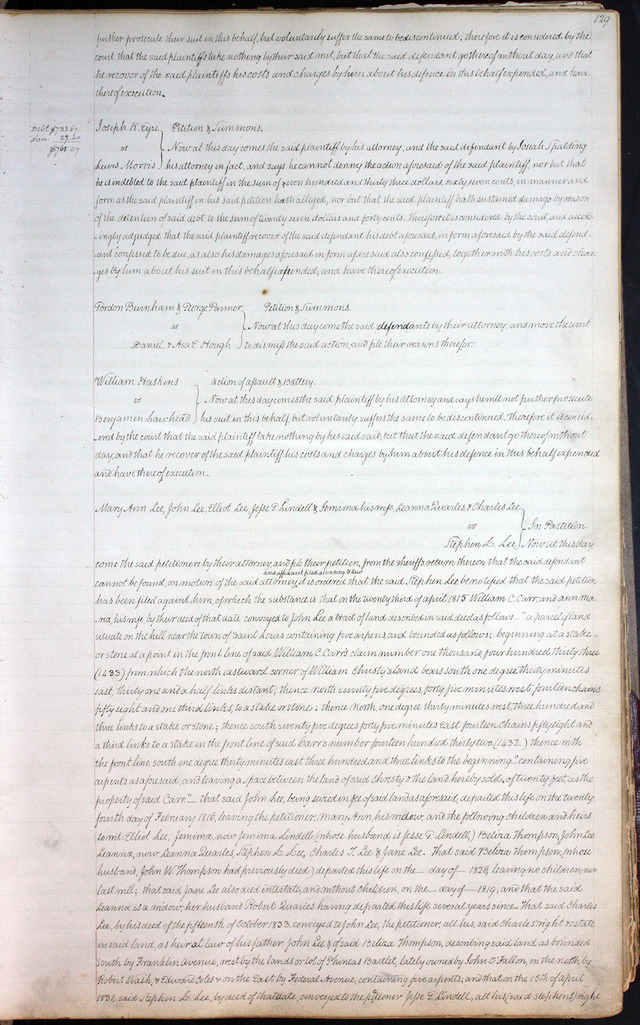 129
further prosecute their suit in this behalf, but voluntarily suffer the same to be discontinued; therefore it is considered by the
court that the said plaintiffs take nothing by their said writ, but that the said defendant go thereof without day, and that
he recover of the said plaintiffs his costs and charges by him about his defence in this behalf expended, and have
thereof execution.
Debt $733.67
Dam: 27.40
$761.07
Joseph R. Eyre } Petition & Summons.
vs } Now at this day comes the said plaintiff by his attorney, and the said defendant by Josiah Spalding
Lewis Morris } his attorney in fact, and says he cannot denny the action aforesaid of the said plaintiff, nor but that
he is indebted to the said plaintiff in the sum of seven hundred and thirty three dollars, sixty seven cents, in manner and
form as the said plaintiff in his said petition hath alleged, nor but that the said plaintiff hath sustained damage by reason
of the detention of said debt, to the sum of twenty seven dollars and forty cents. Therefore it is considered by the court, and accor-
-ingly adjudged that the said plaintiff recover of the said defendant his debt aforesaid, in form aforesaid by the said defend-
ant confessed to be due, as also his damages aforesaid in form aforesaid also confessed, together with his costs and char-
ges by him about his suit in this behalf expended, and have thereof execution.
Gordon Burnham & George Panner } Petition & Summons.
vs } Now at this day come the said defendants by their attorney, and move the court
Daniel & Asa E. Hough } to dismiss the said action, and file their reasons therefor.
William Haskins } action of assault & Battery.
vs } Now at this day comes the said plaintiff by his attorney and says he will not further prosecute
Benjamin Lawhead } his suit in this behalf, but voluntarily suffers the same to be discontinued. Therefore it is consid-
-ered by the court that the said plaintiff take nothing by his said suit, but that the said defendant go thereof without
day, and that he recover of the said plaintiff his costs and charges by him about his defence in this behalf expended
and have thereof execution.
Mary Ann Lee, John Lee, Elliot Lee, Jesse G. Lindell & Jemima his wife, Leanna Quarles, & Charles Lee
vs } In Partition
Stephen L. Lee } Now at this day
come the said petitioners by their attorney, and file their petition, from the sheriff's return thereon that the said defendant
and affidavit filed according to law
cannot be found, on motion of the said attorney, it is ordered that the said Stephen Lee be notified that the said petition
has been filed against him, of which the substance is that on the twenty third of april 1815 William C. Carr, and ann ma-
ria, his wife by their deed of that date conveyed to John Lee a tract of land described in said deed as follows. "a parcel of land
situate on the hill near the town of Saint Louis containing five arpens and bounded as follows: beginning at a stake
or stone at a point in the front line of said William C. Carr's claim number one thousand four hundred thirty three
(1433) from which the north eastward corner of William Christy's land bears south one degree thirty minutes
east, thirty one and a half links distant; thence north seventy five degrees forty five minutes west, fourteen chains
fifty eight and one third links, to a stake or stone; thence north one degree thirty minutes west, three hundred and
three links to a stake or stone; thence south seventy five degrees forty five minutes East fourteen chains fifty eight and
a third links to a stake in the front line of said Carr's number fourteen hundred thirty two (1432) thence with
the front line south one degree thirty minutes east three hundred and three links to the beginning." containing five
arpents as aforesaid, and leaving a space between the land of said Christy & the land hereby sold, of twenty feet, as the
property of said Carr" — that said John Lee, being seized in fee of said land as aforesaid, departed this life on the twenty
fourth day of February 1816, leaving the petitioner, Mary Ann, his widow, and the following children and heirs
to wit: Elliot Lee, Jemima, now Jemima Lindell (whose husband is Jesse G. Lindell,) Beliza Thompson, John Lee
Leanna, now Leanna Quarles, Stephen L. Lee, Charles T. Lee & Jane Lee. That said Beliza Thompson, (whose
husband, John W. Thompson had previously died) departed this life on the — day of — 1829, leaving no children, nor
last will; that said Jane Lee also died intestate, and without children, on the — day of — 1819, and that the said
Leanna is a widow; her husband Robert Quarles having departed this life several years since. That said Charles
Lee, by his deed of the fifteenth of October 1833, conveyed to John Lee, the petitioner, all his, said Charles' right & estate
in said land, as heir at law of his father John Lee & of said Beliza Thompson, describing said land as bounded
south by Franklin Avenue, west by the lands or lot of Phineas Bartlet, lately owned by John O'Fallon, on the north by
Robert Wash, & Edward Coles & on the East by Federal Avenue, containing five arpents; and that on the 15th of April
1831, said Stephen L. Lee, by deed of that date, conveyed to the petitioner Jesse G. Lindell, all his (said Stephen's) right